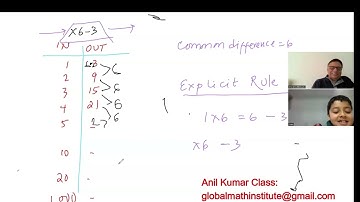 x6-3
IN OUT
1 3 6
2 9
3 15 6
4 21 6
5 6
10 -
20 -
1000
Common difference=6
Explicit Rule
1x6 = 6 - 3
x6 - 3 -
Anil Kumar Class:
globalmathinstitute@gmail.com